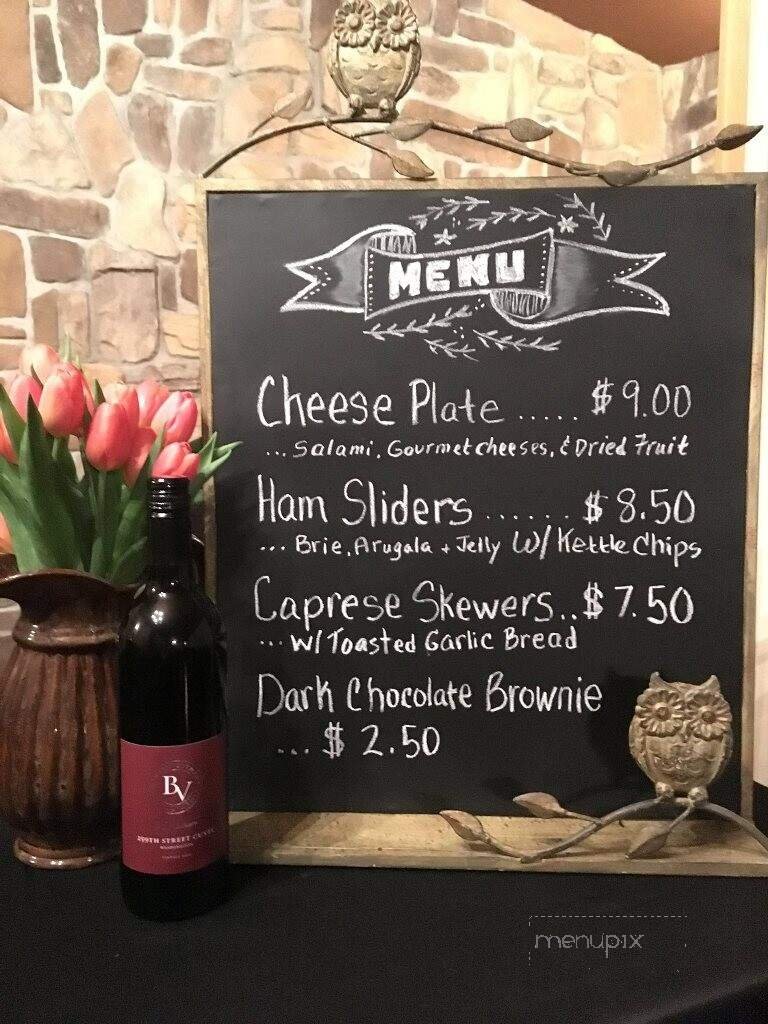 MENU
Cheese Plate ..... $9.00
... Salami, Gourmet cheeses, & Dried Fruit
Ham Sliders ...... $8.50
... Brie, Arugala + Jelly W/ Kettle Chips
Caprese Skewers..$7.50
... W/ Toasted Garlic Bread
Dark Chocolate Brownie
... $2.50
BV
STREET
WASHINGTON
menupix